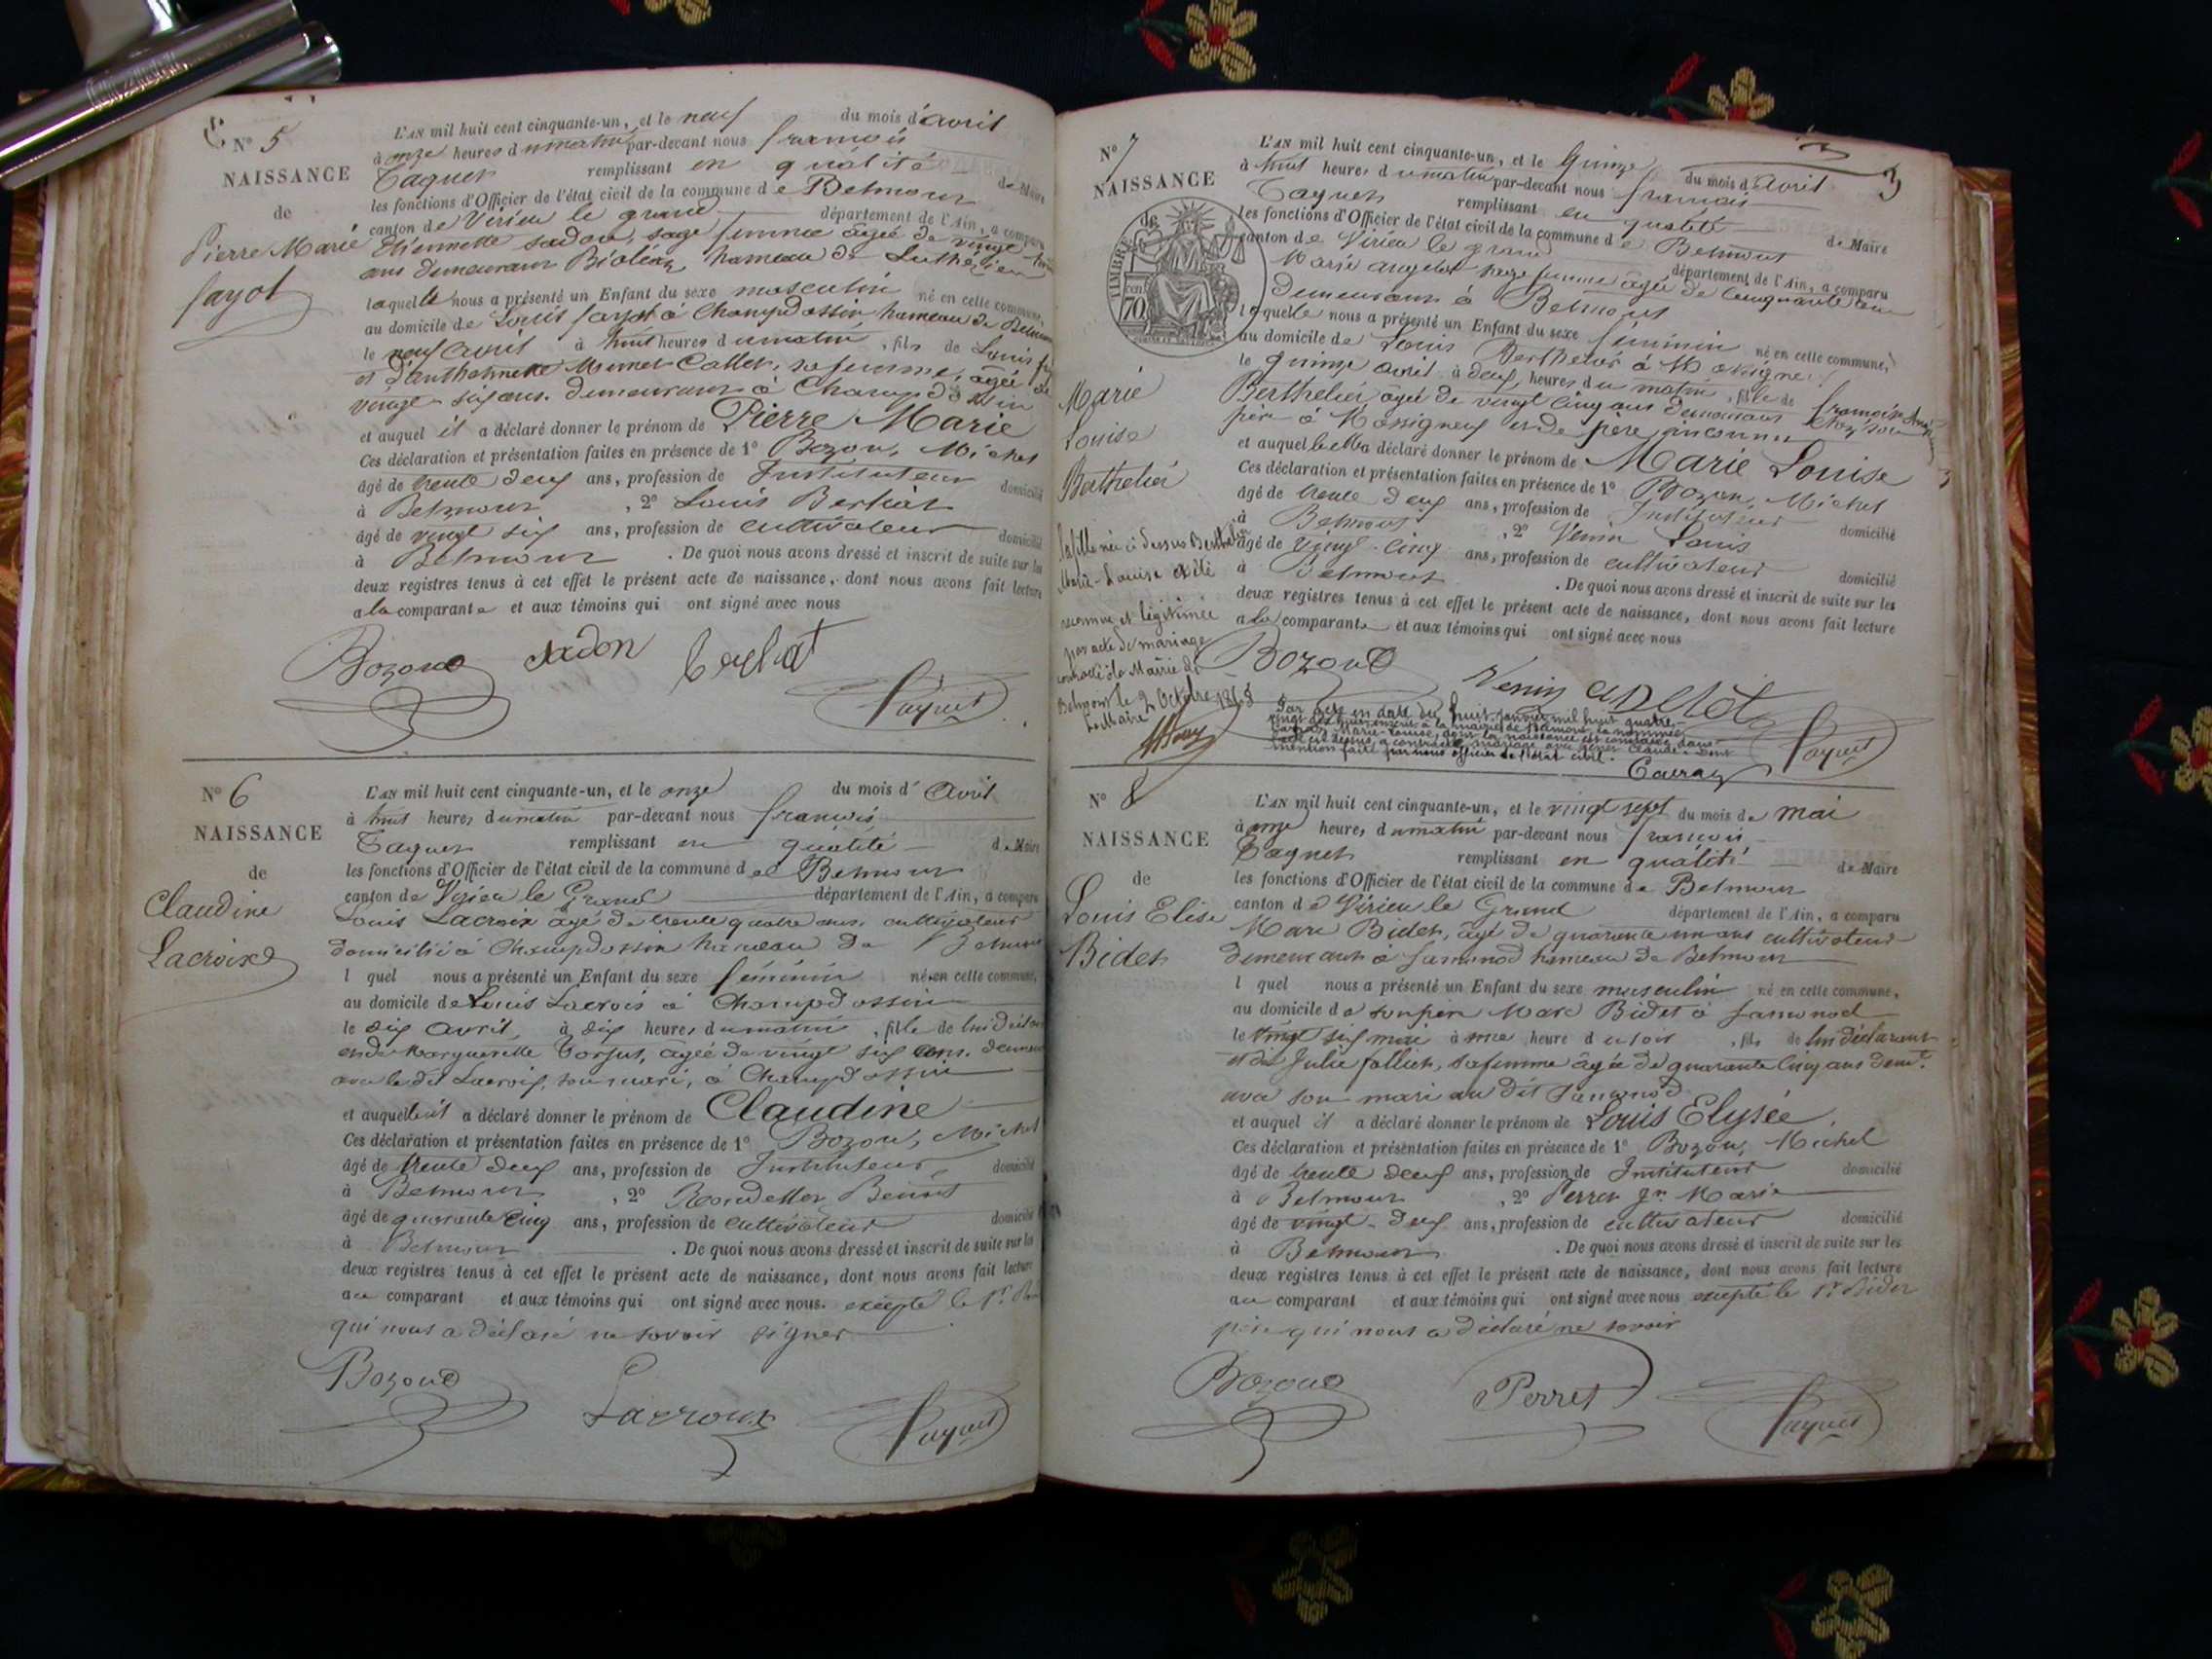 N° 5
NAISSANCE
de
Pierre Marie
fayot
L'AN mil huit cent cinquante-un, et le neuf du mois d'avril
à onze heures du matin par-devant nous françois
remplissant en qualité de Maire
les fonctions d'Officier de l'état civil de la commune de Belmont
canton de Virieu le grand département de l'Ain, a comparu
Etiennette sadon, sage femme agée de vingt
ans demeurant hameau de
laquelle nous a présenté un Enfant du sexe masculin né en cette commune,
au domicile de Louis fayot à Champdossin hameau de
le neuf avril à huit heures du matin, fils de Louis
et d'anthelmette sa femme, âgée de
vingt-six ans demeurant à
et auquel il a déclaré donner le prénom de Pierre Marie
Ces déclaration et présentation faites en présence de 1° Bozon, Michel
âgé de trente deux ans, profession de Instituteur domicilié
à Belmont, 2° Louis
âgé de vingt six ans, profession de cultivateur domicilié
à Belmont. De quoi nous avons dressé et inscrit de suite sur les
deux registres tenus à cet effet le présent acte de naissance, dont nous avons fait lecture
a la comparante et aux témoins qui ont signé avec nous
Bozon sadon
N° 6
NAISSANCE
de
Claudine
Lacroix
L'AN mil huit cent cinquante-un, et le onze du mois d'Avril
à huit heures du matin par-devant nous françois
remplissant en qualité de Maire
les fonctions d'Officier de l'état civil de la commune de Belmont
canton de Virieu le Grand département de l'Ain, a comparu
Louis Lacroix âgé de trente quatre ans cultivateur
domicilié à Champdossin hameau de Belmont
l quel nous a présenté un Enfant du sexe féminin né en cette commune,
au domicile de Louis Lacroix à Champdossin
le dix avril, à dix heures du matin, fille de lui
et de Marguerite agée de vingt six ans.
avec le dit Lacroix, son mari, à Champdossin
et auquel il a déclaré donner le prénom de Claudine
Ces déclaration et présentation faites en présence de 1° Bozon, Michel
âgé de trente deux ans, profession de Instituteur, domicilié
à Belmont, 2° Benoit
âgé de quarante cinq ans, profession de cultivateur domicilié
à Belmont. De quoi nous avons dressé et inscrit de suite sur les
deux registres tenus à cet effet le présent acte de naissance, dont nous avons fait lecture
au comparant et aux témoins qui ont signé avec nous. excepté le
qui nous a déclaré ne savoir signer
Bozon Lacroix
3
N° 7
NAISSANCE
de
TIMBRE
70
Marie
Louise
Berthelié
L'AN mil huit cent cinquante-un, et le Quinze du mois d'avril
à huit heures du matin par-devant nous françois
remplissant en qualité de Maire
les fonctions d'Officier de l'état civil de la commune de Belmont
canton de Virieu le grand département de l'Ain, a comparu
Marie angelot sage femme agée de cinquante ans
demeurant à Belmont
laquelle nous a présenté un Enfant du sexe féminin né en cette commune,
au domicile de Louis à
le quinze avril à deux heures du matin, fille de
Berthelié âgée de vingt cinq ans demeurant chez son
père à et de père inconnu
et auquel elle a déclaré donner le prénom de Marie Louise
Ces déclaration et présentation faites en présence de 1° Bozon, Michel
âgé de trente deux ans, profession de Instituteur domicilié
à Belmont, 2° Venin Louis
âgé de vingt-cinq ans, profession de cultivateur domicilié
à Belmont. De quoi nous avons dressé et inscrit de suite sur les
deux registres tenus à cet effet le présent acte de naissance, dont nous avons fait lecture
a la comparante et aux témoins qui ont signé avec nous
la fille née ci dessus
Marie-Louise a été
reconnue et légitimée
par acte de mariage
contracté à la Mairie de
Belmont le 2 Octobre 1868
Le Maire
Bozon Venin angelot
Par acte en date du huit janvier mil huit quatre-
vingt inscrit à la mairie de la nommée
Marie-Louise, dont la naissance est constatée dans
l'acte ci-dessus a contracté mariage avec Claude. Dont
mention faite par nous officier de l'état civil.
N° 8
NAISSANCE
de
Louis Elisé
Bidet
L'AN mil huit cent cinquante-un, et le vingt sept du mois de mai
à onze heures du matin par-devant nous françois
remplissant en qualité de Maire
les fonctions d'Officier de l'état civil de la commune de Belmont
canton de Virieu le Grand département de l'Ain, a comparu
Marc Bidet, âgé de quarante un ans cultivateur
demeurant à hameau de Belmont
l quel nous a présenté un Enfant du sexe masculin né en cette commune,
au domicile de son père Marc Bidet à
le vingt six mai à une heure du soir, fils de lui déclarant
et de Julie follier, sa femme âgée de quarante cinq ans demt.
avec son mari au dit
et auquel il a déclaré donner le prénom de Louis Elysée.
Ces déclaration et présentation faites en présence de 1° Bozon, Michel
âgé de trente deux ans, profession de Instituteur domicilié
à Belmont, 2° Perret Marie
âgé de vingt-deux ans, profession de cultivateur domicilié
à Belmont. De quoi nous avons dressé et inscrit de suite sur les
deux registres tenus à cet effet le présent acte de naissance, dont nous avons fait lecture
au comparant et aux témoins qui ont signé avec nous excepté le Sr Bidet
père qui nous a déclaré ne savoir
Bozon Perret